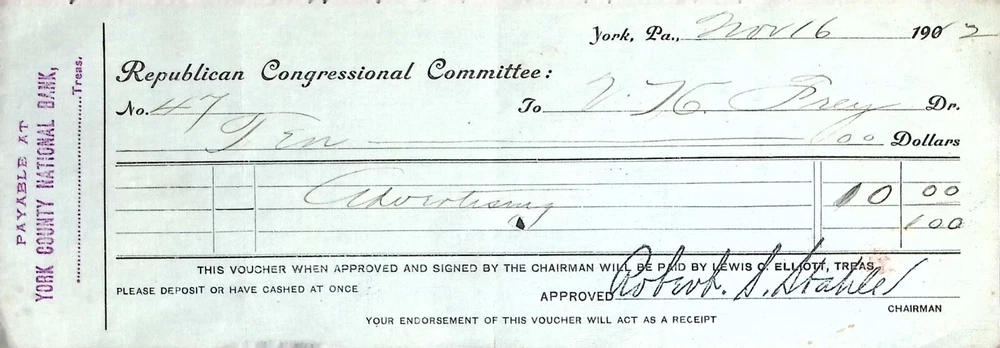 York, Pa., Nov 16 1902
Republican Congressional Committee:
No. 47 To V. K. Frey Dr.
Ten 00 Dollars
Advertising 10 00
1 00
THIS VOUCHER WHEN APPROVED AND SIGNED BY THE CHAIRMAN WILL BE PAID BY LEWIS C. ELLIOTT, TREAS.
PLEASE DEPOSIT OR HAVE CASHED AT ONCE
APPROVED Robert S. Stahle
CHAIRMAN
YOUR ENDORSEMENT OF THIS VOUCHER WILL ACT AS A RECEIPT
PAYABLE AT
YORK COUNTY NATIONAL BANK,
Treas.